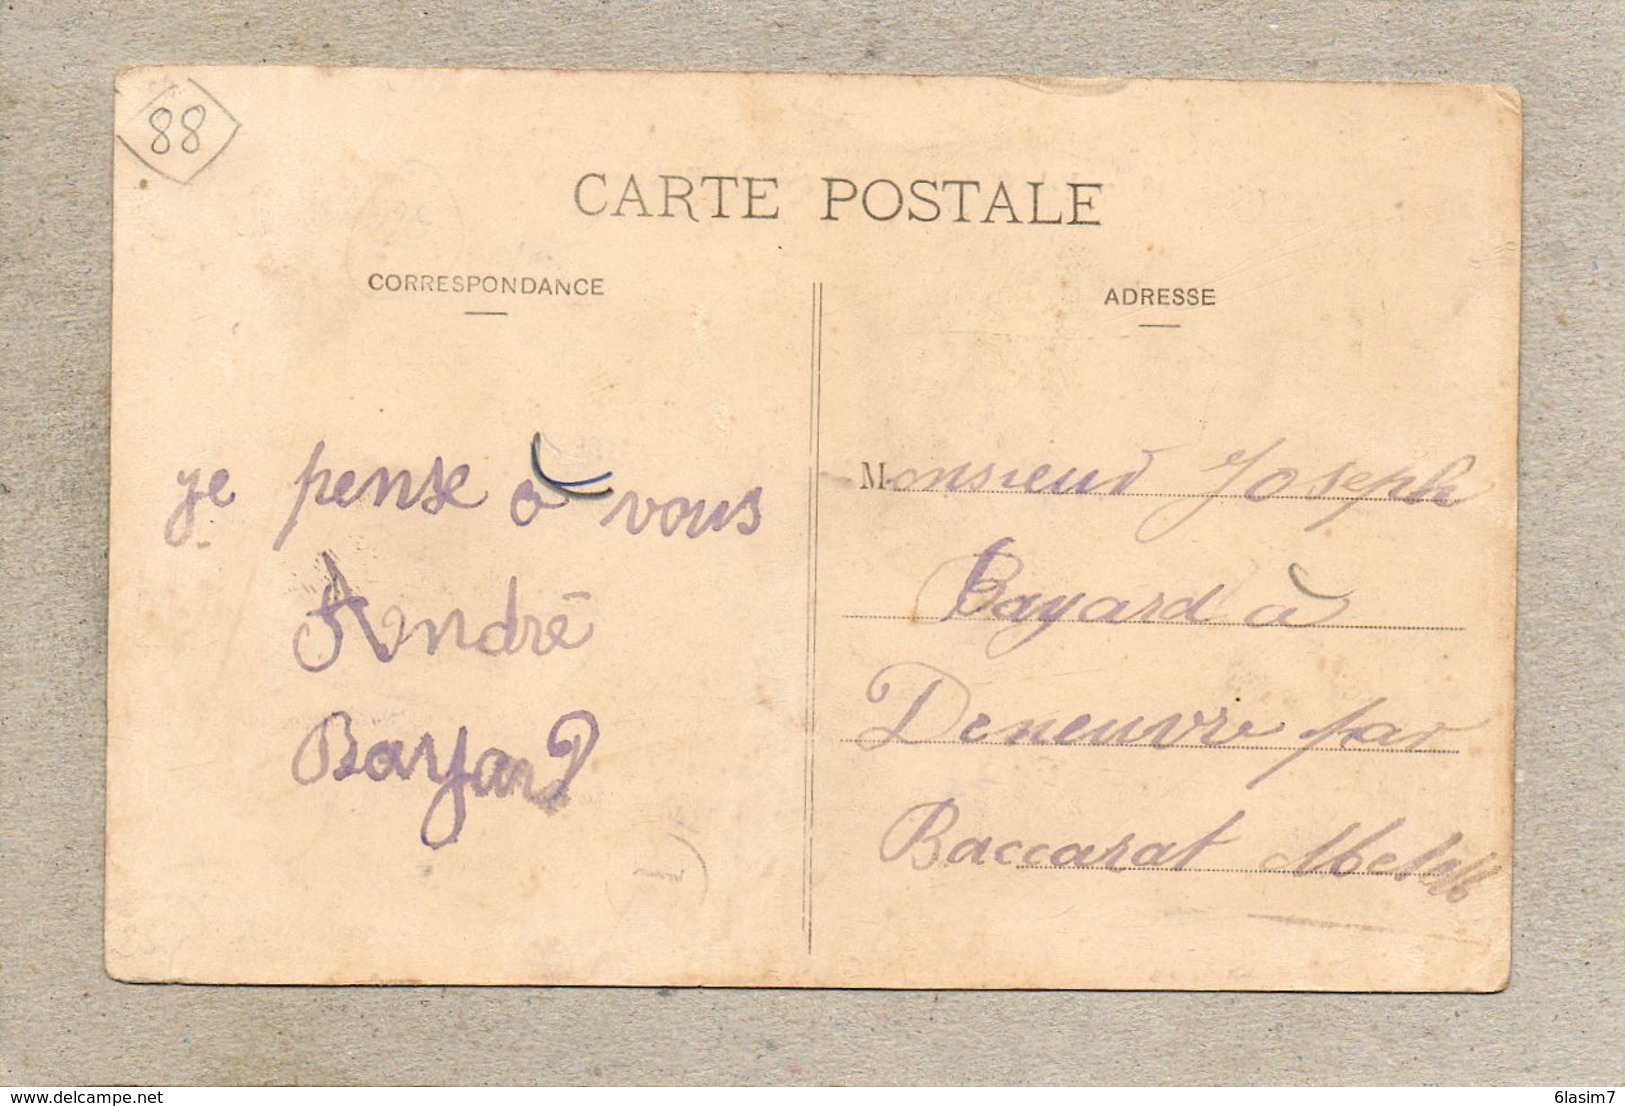 88
CARTE POSTALE
CORRESPONDANCE
ADRESSE
je pense à vous
André
Bayard
Monsieur Joseph
Bayard à
Deneuvre par
Baccarat
delcampe.net
6lasim7